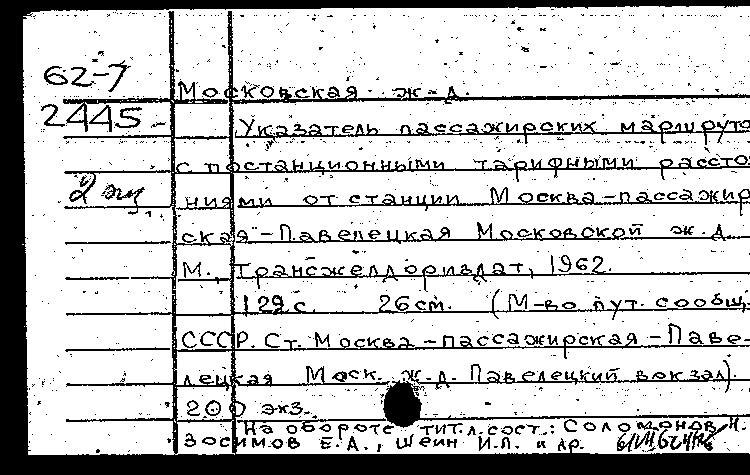 62-7
Московская ж-д.
2445-
Указатель пассажирских маршруто
с постанционными тарифными рассто-
2 экз.
ниями от станции Москва-пассажир-
ская-Павелецкая Московской ж.д.
М., Трансжелдориздат, 1962.
129 с. 26 см. (М-во пут. сообщ.
СССР. Ст. Москва-пассажирская-Паве-
лецкая Моск. ж.д. Павелецкий вокзал).
200 экз.
На обороте тит.л. сост.: Соломонов И.
Зосимов Е.А., Шеин И.П. и др.